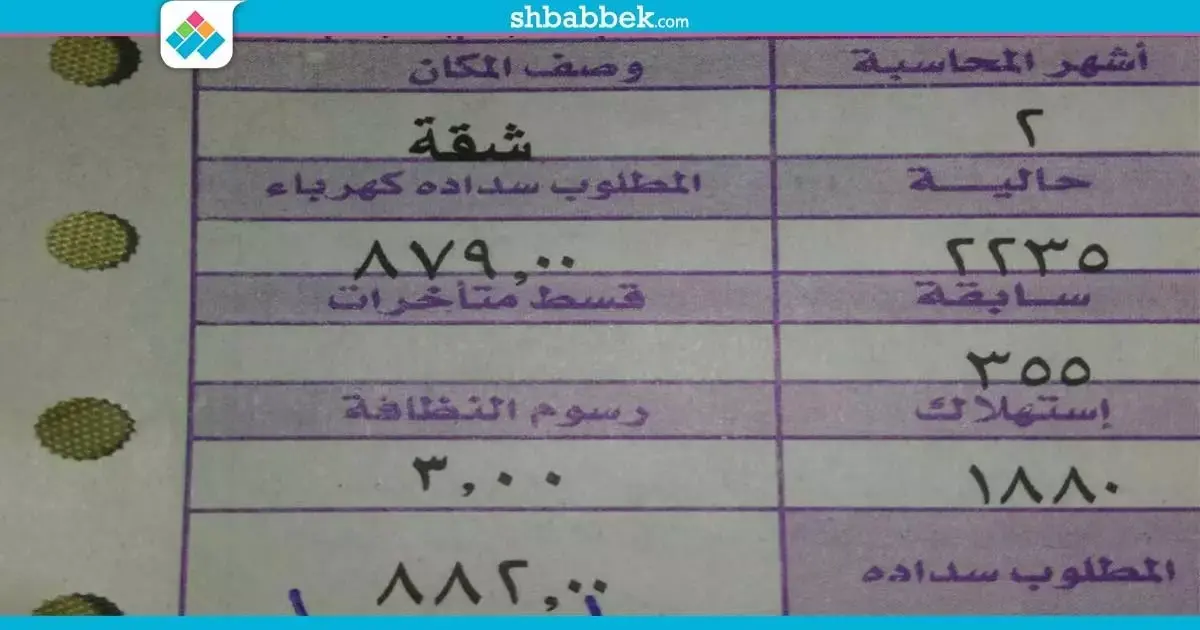 shbabbek.com
أشهر المحاسبة وصف المكان
٢ شقة
حاليـــة المطلوب سداده كهرباء
٢٢٣٥ ٨٧٩,٠٠
ســابقة قسط متأخرات
٣٥٥
إستهلاك رسوم النظافة
١٨٨٠ ٣,٠٠
المطلوب سداده ٨٨٢,٠٠